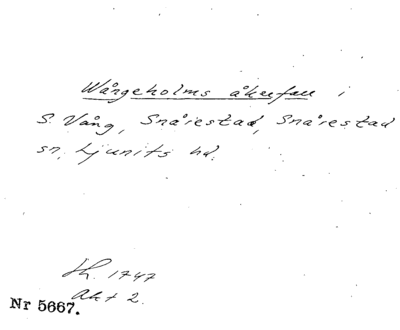 Wångeholms åkerfall i
S. Vång, Snårestad, Snårestad
sn, Ljunits hd.
Sk. 1747
Akt 2.
Nr 5667.